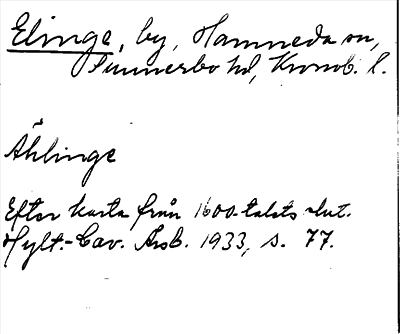 Elinge, by, Hamneda sn,
Sunnerbo hd, Kronob. l.
Åhlinge
Efter karta från 1600-talets slut.
Hylt.-Cav. Årsb. 1933, s. 77.